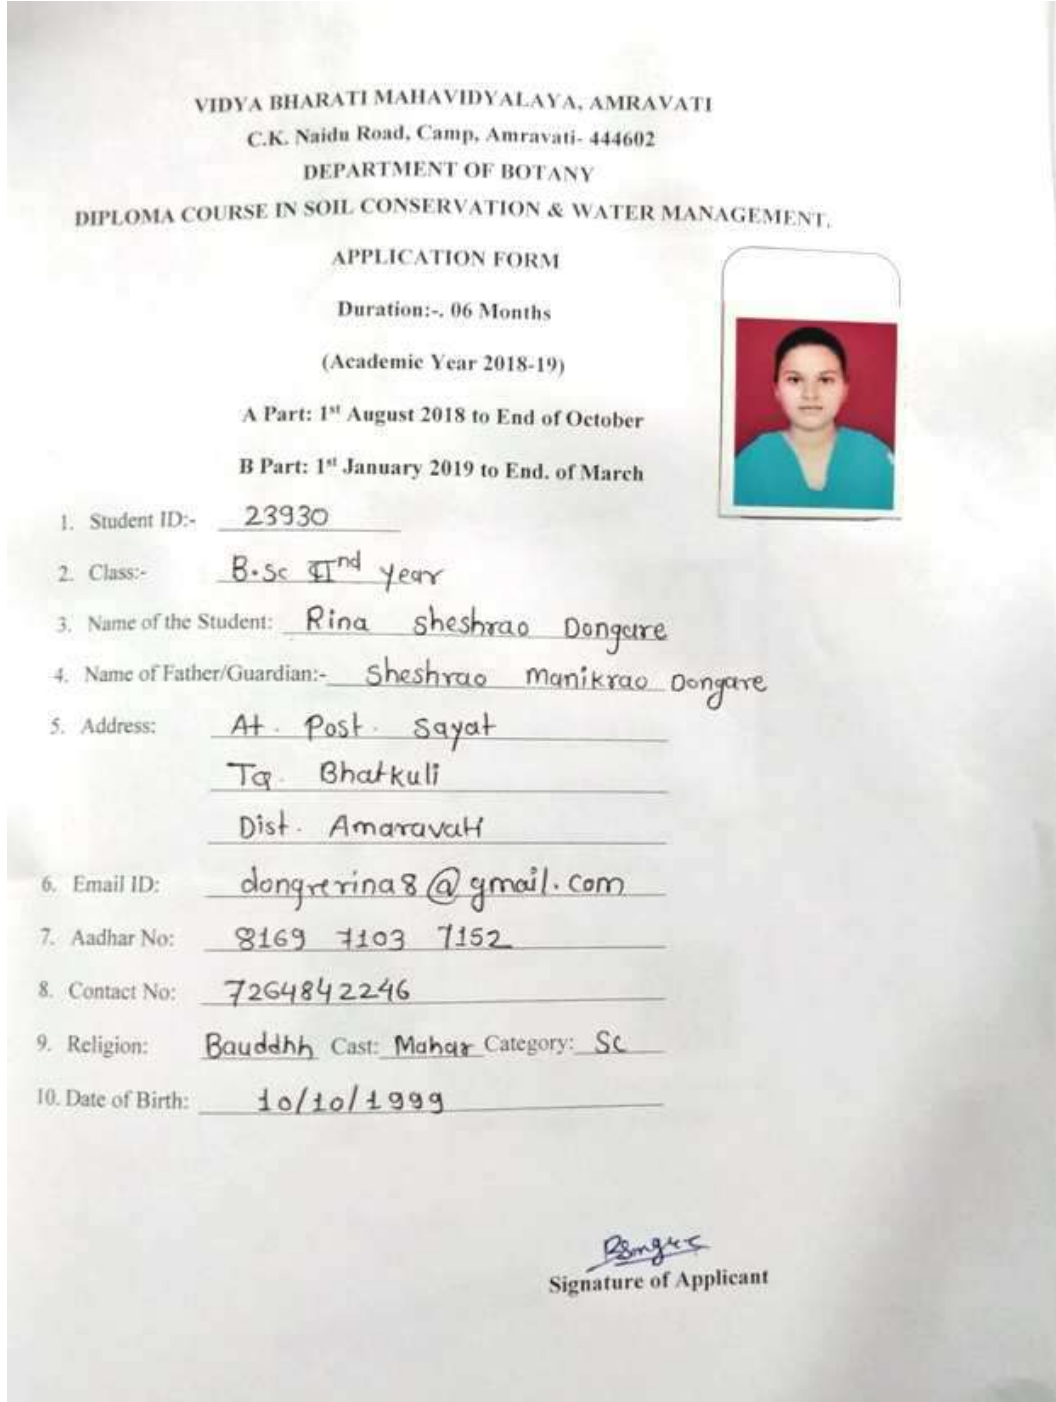 VIDYA BHARATI MAHAVIDYALAYA, AMRAVATI
C.K. Naidu Road, Camp, Amravati- 444602
DEPARTMENT OF BOTANY
DIPLOMA COURSE IN SOIL CONSERVATION & WATER MANAGEMENT.
APPLICATION FORM
Duration:-. 06 Months
(Academic Year 2018-19)
A Part: 1st August 2018 to End of October
B Part: 1st January 2019 to End. of March
1. Student ID:- 23930
2. Class:- B.Sc IInd year
3. Name of the Student: Rina Sheshrao Dongare
4. Name of Father/Guardian:- Sheshrao Manikrao Dongare
5. Address: At. Post. Sayat
Tq. Bhatkuli
Dist. Amaravati
6. Email ID: dongrerina8@gmail.com
7. Aadhar No: 8169 7103 7152
8. Contact No: 7264842246
9. Religion: Bauddhh Cast: Mahar Category: Sc
10. Date of Birth: 10/10/1999
Signature of Applicant